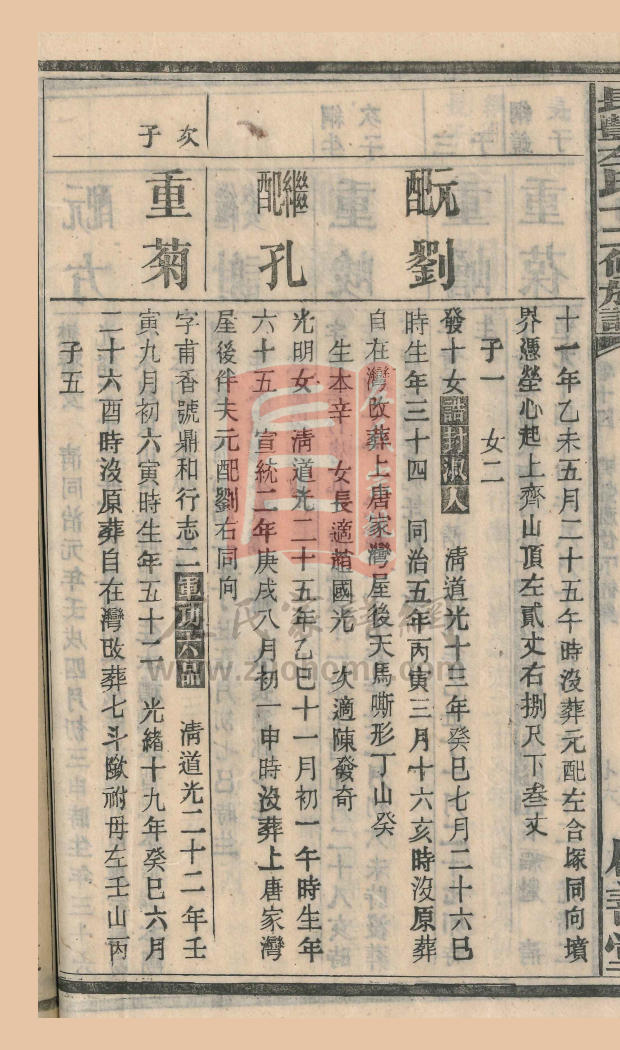 十一年乙未五月二十五午時沒葬元配左合塚同向墳
界憑塋心起上齊山頂左貳丈右捌尺下叁丈
子一 女二
元配劉
發十女誥封淑人 清道光十三年癸巳七月二十六巳
時生年三十四 同治五年丙寅三月十六亥時沒原葬
自在灣改葬上唐家灣屋後天馬嘶形丁山癸
生本辛 女長適趙國光 次適陳發奇
繼配孔
光明女 清道光二十五年乙巳十一月初一午時生年
六十五 宣統二年庚戌八月初一申時沒葬上唐家灣
屋後伴夫元配劉右同向
次子
重菊
字甫香號鼎和行志二軍功六品 清道光二十二年壬
寅九月初六寅時生年五十二 光緒十九年癸巳六月
二十六酉時沒原葬自在灣改葬七斗祔母左壬山丙
子五
www.zuohome.com